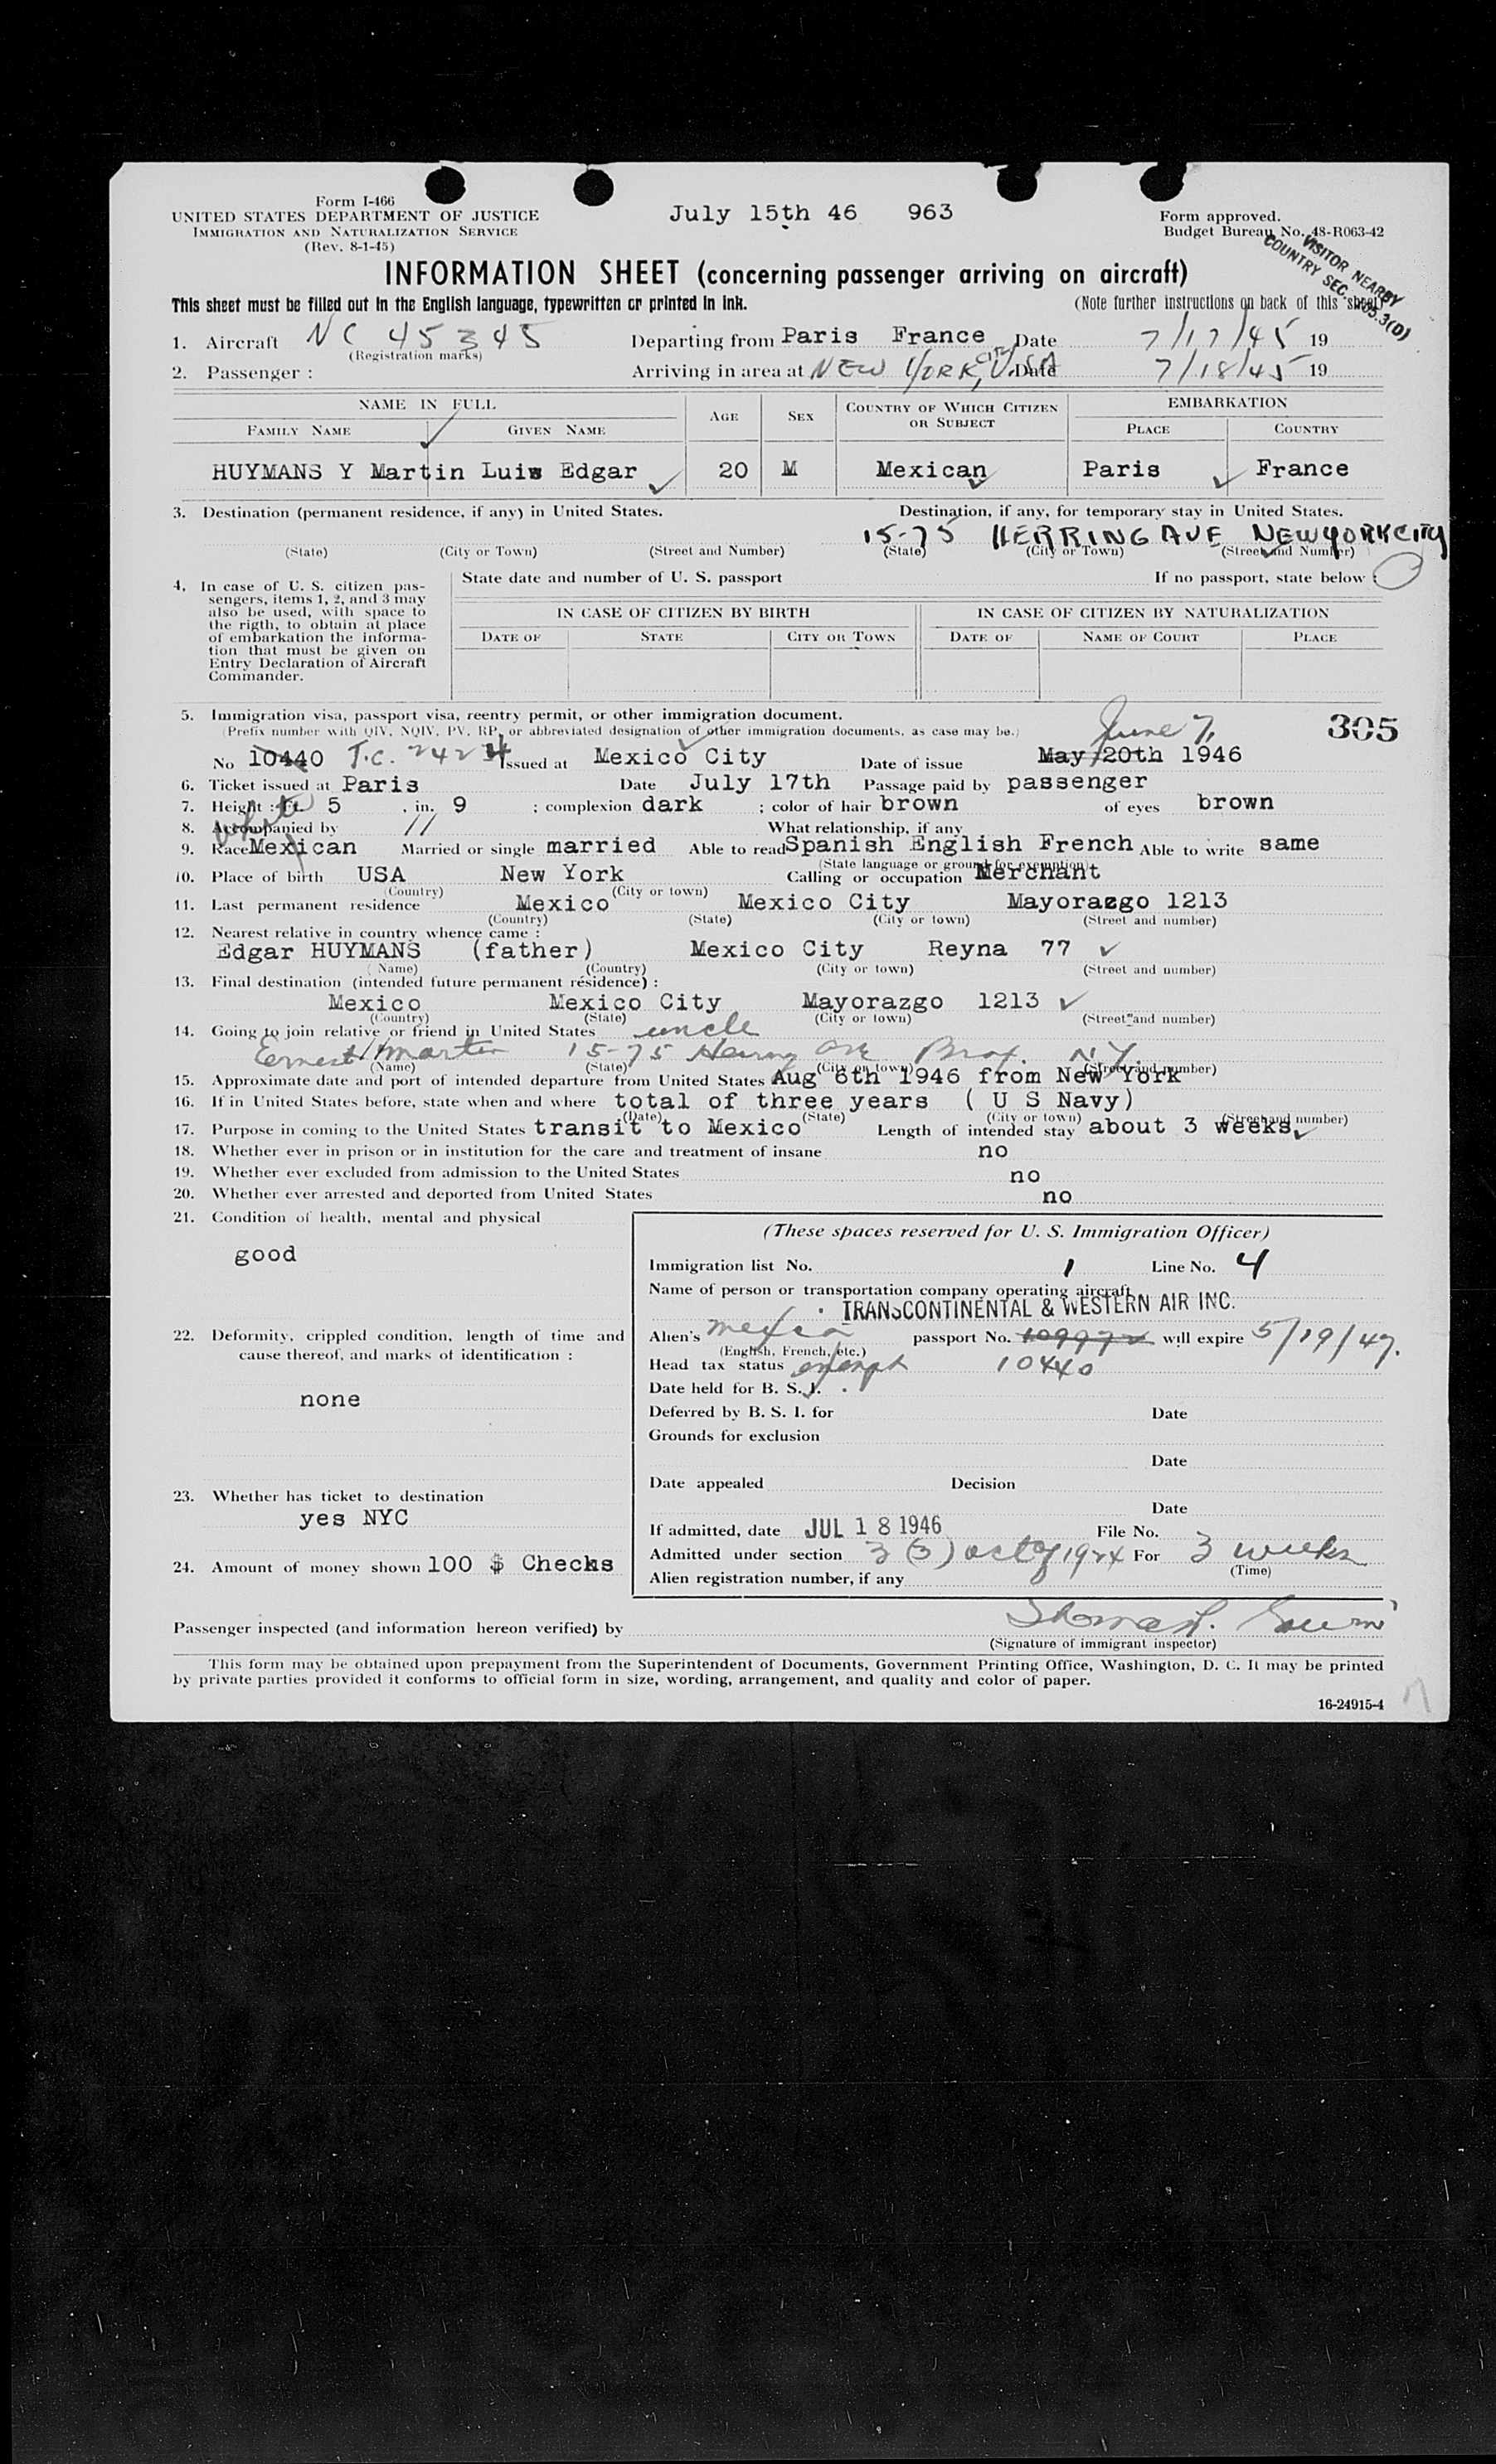 Form I-466
UNITED STATES DEPARTMENT OF JUSTICE
IMMIGRATION AND NATURALIZATION SERVICE
(Rev. 8-1-45)
July 15th 46 963
Form approved.
Budget Bureau No. 48-R063-42
VISITOR NEARBY
COUNTRY SEC.
INFORMATION SHEET (concerning passenger arriving on aircraft)
This sheet must be filled out in the English language, typewritten or printed in ink. (Note further instructions on back of this sheet)
1. Aircraft NC 45345 Departing from Paris France Date 7/17/45 19
(Registration marks)
2. Passenger : Arriving in area at NEW YORK, CITY U.SA Date 7/18/45 19
NAME IN FULL AGE SEX COUNTRY OF WHICH CITIZEN OR SUBJECT EMBARKATION
FAMILY NAME GIVEN NAME PLACE COUNTRY
HUYMANS Y Martin Luis Edgar 20 M Mexican Paris France
3. Destination (permanent residence, if any) in United States. Destination, if any, for temporary stay in United States.
15-75 HERRING AVE NEW YORK CITY
(State) (City or Town) (Street and Number) (State) (City or Town) (Street and Number)
4. In case of U. S. citizen pas-
sengers, items 1, 2, and 3 may
also be used, with space to
the rigth, to obtain at place
of embarkation the informa-
tion that must be given on
Entry Declaration of Aircraft
Commander.
State date and number of U. S. passport If no passport, state below :
IN CASE OF CITIZEN BY BIRTH IN CASE OF CITIZEN BY NATURALIZATION
DATE OF STATE CITY OR TOWN DATE OF NAME OF COURT PLACE
5. Immigration visa, passport visa, reentry permit, or other immigration document. June 7, 305
(Prefix number with QIV, NQIV, PV, RP, or abbreviated designation of other immigration documents, as case may be.)
No 10440 T.C. 2424 Issued at Mexico City Date of issue May 20th 1946
6. Ticket issued at Paris Date July 17th Passage paid by passenger
7. Height : ft. 5 , in. 9 ; complexion dark ; color of hair brown of eyes brown
8. Accompanied by What relationship, if any
white
9. Race Mexican Married or single married Able to read Spanish English French Able to write same
(State language or ground for exemption)
10. Place of birth USA New York Calling or occupation Merchant
(Country) (City or town)
11. Last permanent residence Mexico Mexico City Mayorazgo 1213
(Country) (State) (City or town) (Street and number)
12. Nearest relative in country whence came :
Edgar HUYMANS (father) Mexico City Reyna 77
(Name) (Country) (City or town) (Street and number)
13. Final destination (intended future permanent residence) :
Mexico Mexico City Mayorazgo 1213
(Country) (State) (City or town) (Street and number)
14. Going to join relative or friend in United States uncle
Ernest Martin 15-75 Hering Ave N.Y.
(Name) (State) (City or town) (Street and number)
15. Approximate date and port of intended departure from United States Aug 6th 1946 from New York
16. If in United States before, state when and where total of three years ( U S Navy)
(Date) (State) (City or town) (Street and number)
17. Purpose in coming to the United States transit to Mexico Length of intended stay about 3 weeks
18. Whether ever in prison or in institution for the care and treatment of insane no
19. Whether ever excluded from admission to the United States no
20. Whether ever arrested and deported from United States no
21. Condition of health, mental and physical
good
22. Deformity, crippled condition, length of time and
cause thereof, and marks of identification :
none
23. Whether has ticket to destination
yes NYC
24. Amount of money shown 100 $ Checks
(These spaces reserved for U. S. Immigration Officer)
Immigration list No. 1 Line No. 4
Name of person or transportation company operating aircraft
TRANSCONTINENTAL & WESTERN AIR INC.
Alien's passport No. will expire 5/19/47.
(English, French, etc.)
Head tax status exempt 10440
Date held for B. S. I.
Deferred by B. S. I. for Date
Grounds for exclusion
Date
Date appealed Decision
Date
If admitted, date JUL 18 1946 File No.
Admitted under section 3(3) act of 1924 For 3 weeks
(Time)
Alien registration number, if any
Passenger inspected (and information hereon verified) by
(Signature of immigrant inspector)
This form may be obtained upon prepayment from the Superintendent of Documents, Government Printing Office, Washington, D. C. It may be printed
by private parties provided it conforms to official form in size, wording, arrangement, and quality and color of paper.
16-24915-4